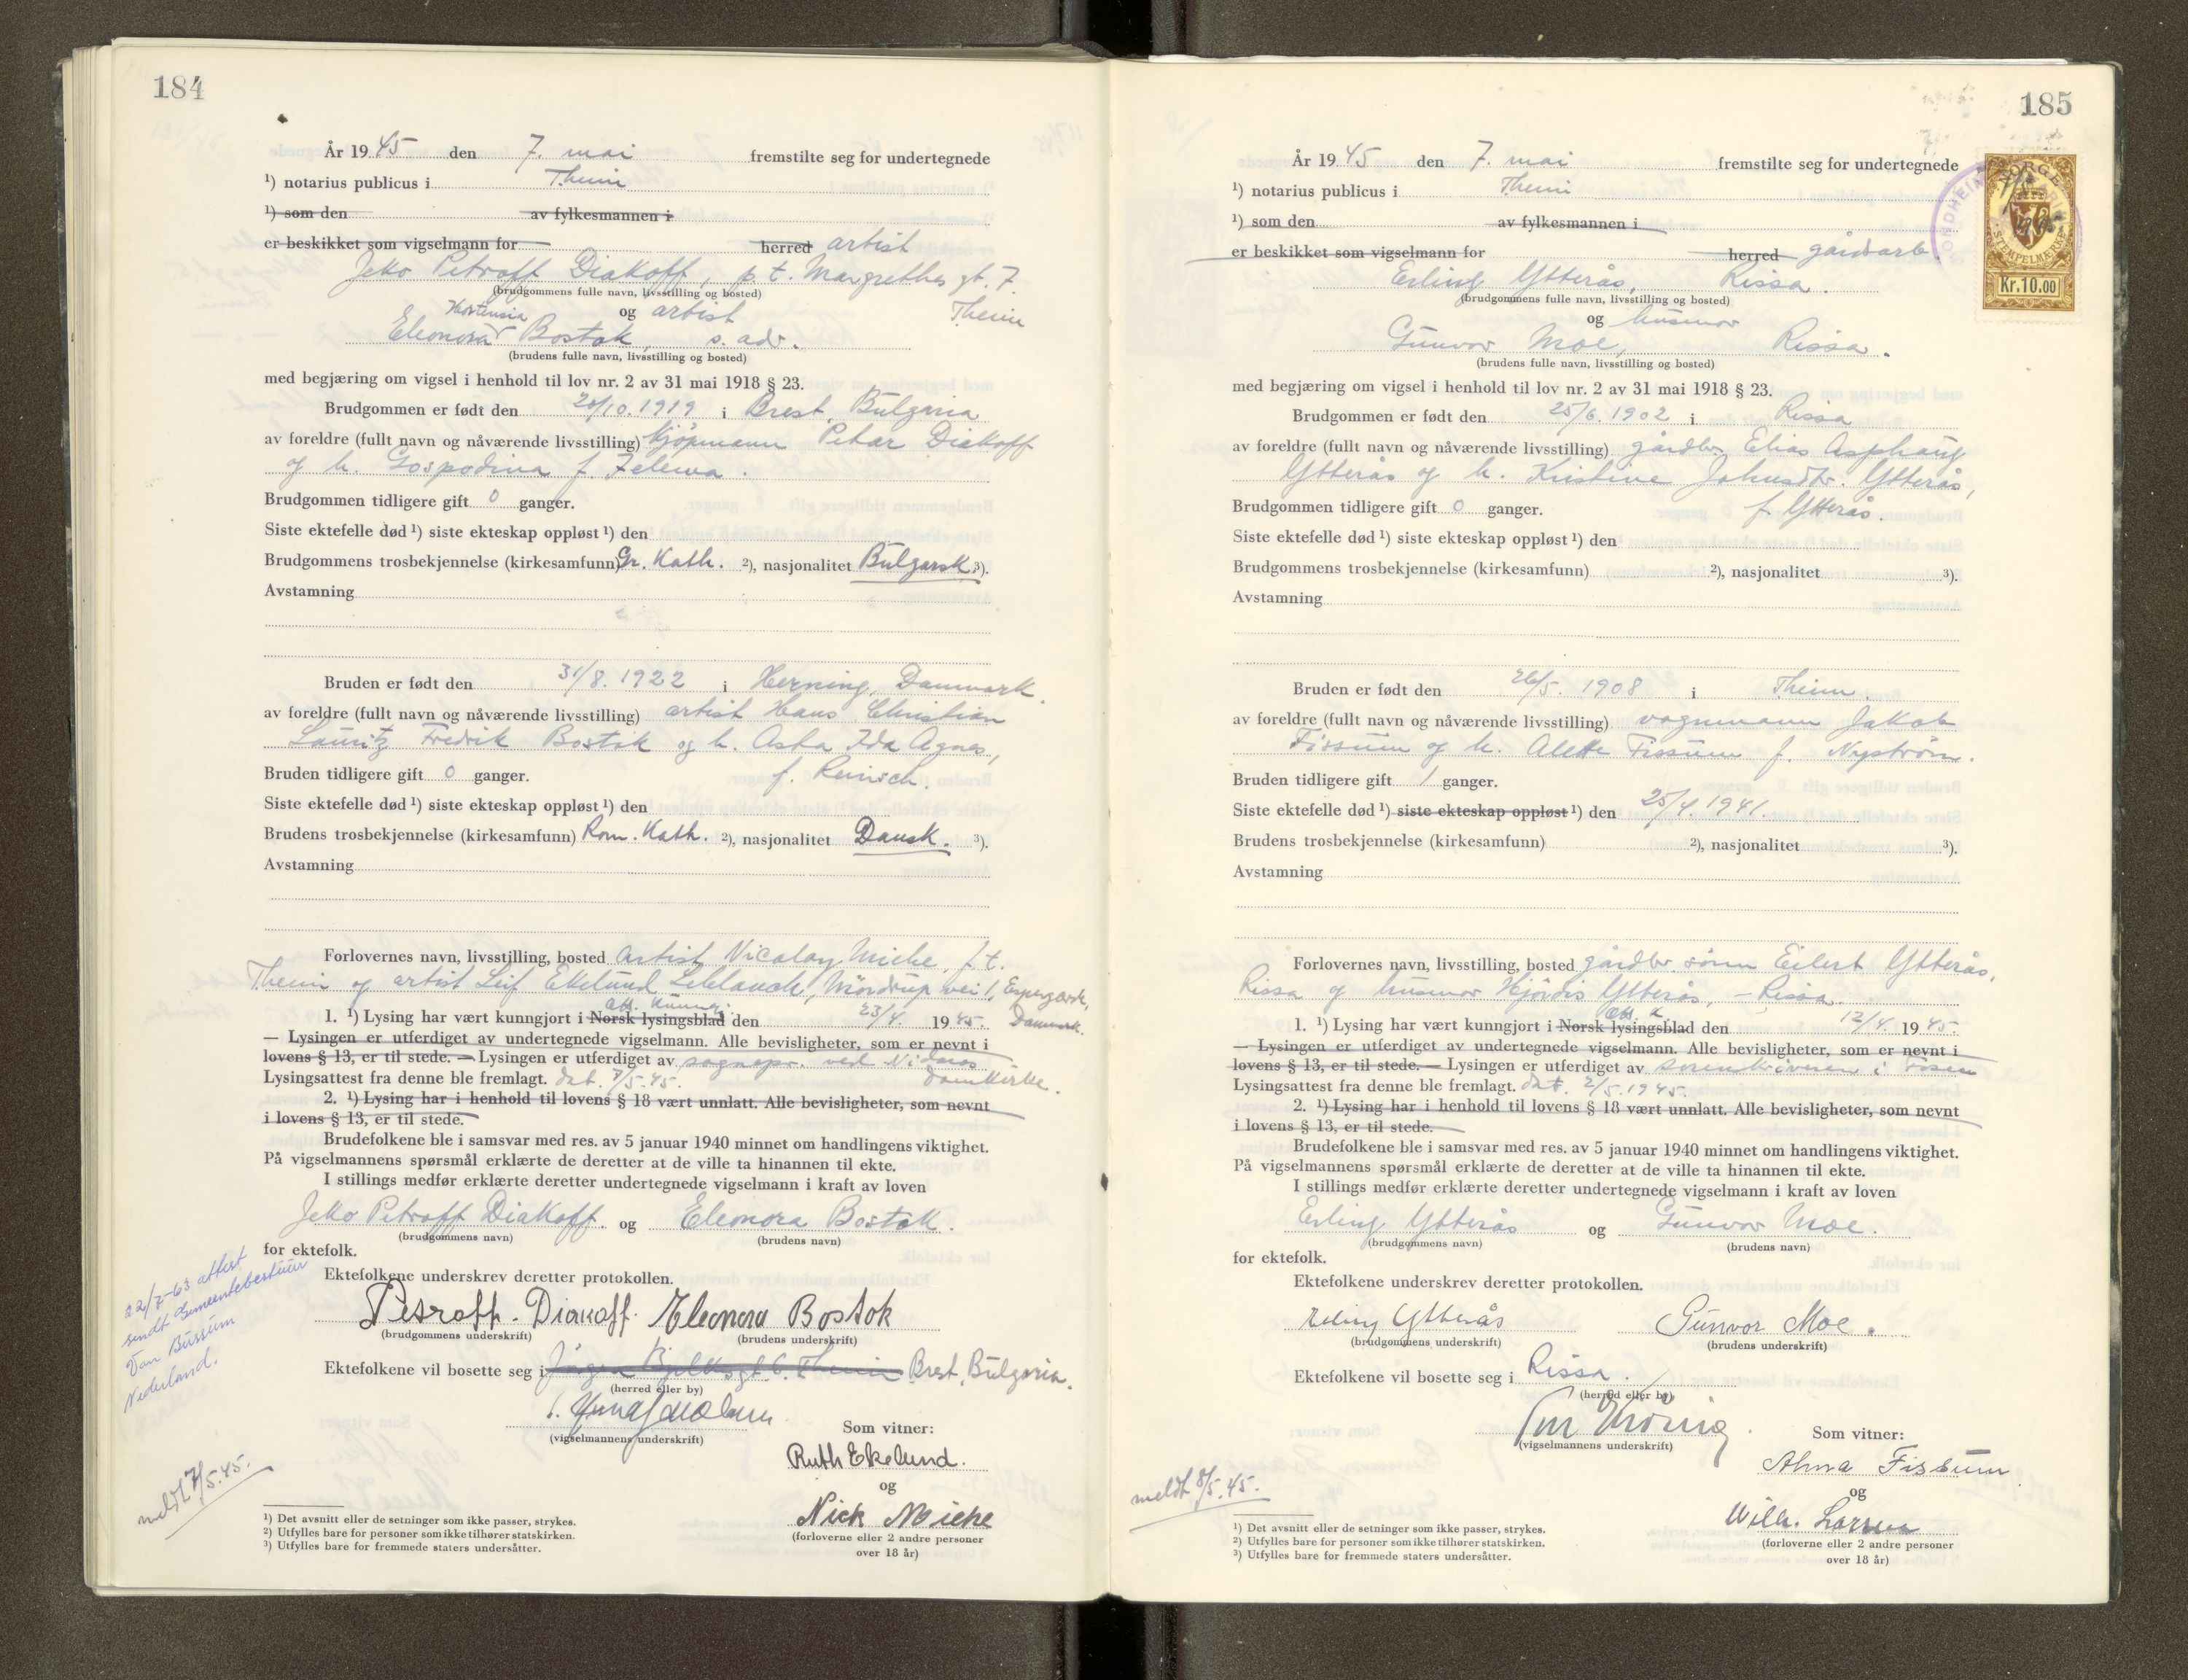 184
År 1945 den 7. mai fremstilte seg for undertegnede
¹) notarius publicus i Theim
¹) som den av fylkesmannen i
er beskikket som vigselmann for herred artist
Jeko Petroff Diakoff, p.t. Margrethes gt. 7
(brudgommens fulle navn, livsstilling og bosted) Theim
Hortensia og artist
Eleonora Bostok, s. adr.
(brudens fulle navn, livsstilling og bosted)
med begjæring om vigsel i henhold til lov nr. 2 av 31 mai 1918 § 23.
Brudgommen er født den 20/10.1919 i Brest, Bulgaria
av foreldre (fullt navn og nåværende livsstilling) kjöpmann Petar Diakoff
og h. Gospodina f. Zelewa.
Brudgommen tidligere gift 0 ganger.
Siste ektefelle død ¹) siste ekteskap oppløst ¹) den
Brudgommens trosbekjennelse (kirkesamfunn) Gr. Kath. ²), nasjonalitet Bulgarsk. ³).
Avstamning
Bruden er født den 31/8. 1922 i Herning, Danmark.
av foreldre (fullt navn og nåværende livsstilling) artist Hans Christian
Lauritz Fredrik Bostok og h. Asta Ida Agnes,
Bruden tidligere gift 0 ganger. f. Reinsch.
Siste ektefelle død ¹) siste ekteskap oppløst ¹) den
Brudens trosbekjennelse (kirkesamfunn) Rom. Kath. ²), nasjonalitet Dansk. ³).
Avstamning
Forlovernes navn, livsstilling, bosted artist Nicolay Miche, p.t.
Theim og artist Leif Ekelund, Mördrup vei 1, Espergærde,
1. ¹) Lysing har vært kunngjort i Norsk lysingsblad den 23/4. 1945. Danmark.
— Lysingen er utferdiget av undertegnede vigselmann. Alle bevisligheter, som er nevnt i
lovens § 13, er til stede. — Lysingen er utferdiget av sognepr. ved Nidaros
Lysingsattest fra denne ble fremlagt. dat. 7/5.45. Domkirke.
2. ¹) Lysing har i henhold til lovens § 18 vært unnlatt. Alle bevisligheter, som nevnt
i lovens § 13, er til stede.
Brudefolkene ble i samsvar med res. av 5 januar 1940 minnet om handlingens viktighet.
På vigselmannens spørsmål erklærte de deretter at de ville ta hinannen til ekte.
I stillings medfør erklærte deretter undertegnede vigselmann i kraft av loven
Jeko Petroff Diakoff og Eleonora Bostok.
(brudgommens navn) (brudens navn)
for ektefolk.
22/7-63 attest
sendt Gemeentebestuur
Van Bussum
Nederland.
Ektefolkene underskrev deretter protokollen.
Petroff. Diakoff. Eleonora Bostok
(brudgommens underskrift) (brudens underskrift)
Ektefolkene vil bosette seg i Brest, Bulgaria.
(herred eller by)
(vigselmannens underskrift) Som vitner:
Ruth Ekelund.
og
Nick Miche
(forloverne eller 2 andre personer
over 18 år)
meldt 7/5.45.
¹) Det avsnitt eller de setninger som ikke passer, strykes.
²) Utfylles bare for personer som ikke tilhører statskirken.
³) Utfylles bare for fremmede staters undersåtter.
185
NORGE
STEMPELMÆRKE
Kr. 10.00
År 1945 den 7. mai fremstilte seg for undertegnede
¹) notarius publicus i Theim
¹) som den av fylkesmannen i
er beskikket som vigselmann for herred gårdsarb.
Erling Ytterås, Rissa.
(brudgommens fulle navn, livsstilling og bosted)
og husmor
Gunvor Moe, Rissa.
(brudens fulle navn, livsstilling og bosted)
med begjæring om vigsel i henhold til lov nr. 2 av 31 mai 1918 § 23.
Brudgommen er født den 25/6. 1902 i Rissa
av foreldre (fullt navn og nåværende livsstilling) gårdbr. Elias Asphaug
Ytterås og h. Kristine Johnsdtr. Ytterås,
Brudgommen tidligere gift 0 ganger. f. Ytterås.
Siste ektefelle død ¹) siste ekteskap oppløst ¹) den
Brudgommens trosbekjennelse (kirkesamfunn) ²), nasjonalitet ³).
Avstamning
Bruden er født den 26/5. 1908 i Theim.
av foreldre (fullt navn og nåværende livsstilling) vognmann Jakob
Fissum og h. Alette Fissum f. Nyström.
Bruden tidligere gift 1 ganger.
Siste ektefelle død ¹) siste ekteskap oppløst ¹) den 25/4. 1941.
Brudens trosbekjennelse (kirkesamfunn) ²), nasjonalitet ³).
Avstamning
Forlovernes navn, livsstilling, bosted gårdbr. sönn Eilert Ytterås,
Rissa og husmor Hjördis Ytterås, - Rissa.
1. ¹) Lysing har vært kunngjort i Norsk lysingsblad den 12/4 1945.
— Lysingen er utferdiget av undertegnede vigselmann. Alle bevisligheter, som er nevnt i
lovens § 13, er til stede. — Lysingen er utferdiget av sorenskriveren i Fosen
Lysingsattest fra denne ble fremlagt. dat. 2/5.1945.
2. ¹) Lysing har i henhold til lovens § 18 vært unnlatt. Alle bevisligheter, som nevnt
i lovens § 13, er til stede.
Brudefolkene ble i samsvar med res. av 5 januar 1940 minnet om handlingens viktighet.
På vigselmannens spørsmål erklærte de deretter at de ville ta hinannen til ekte.
I stillings medfør erklærte deretter undertegnede vigselmann i kraft av loven
Erling Ytterås og Gunvor Moe.
(brudgommens navn) (brudens navn)
for ektefolk.
Ektefolkene underskrev deretter protokollen.
Erling Ytterås Gunvor Moe.
(brudgommens underskrift) (brudens underskrift)
Ektefolkene vil bosette seg i Rissa.
(herred eller by)
(vigselmannens underskrift) Som vitner:
Alma Fissum
og
Wilh. Larsen
(forloverne eller 2 andre personer
over 18 år)
meldt 8/5.45.
¹) Det avsnitt eller de setninger som ikke passer, strykes.
²) Utfylles bare for personer som ikke tilhører statskirken.
³) Utfylles bare for fremmede staters undersåtter.